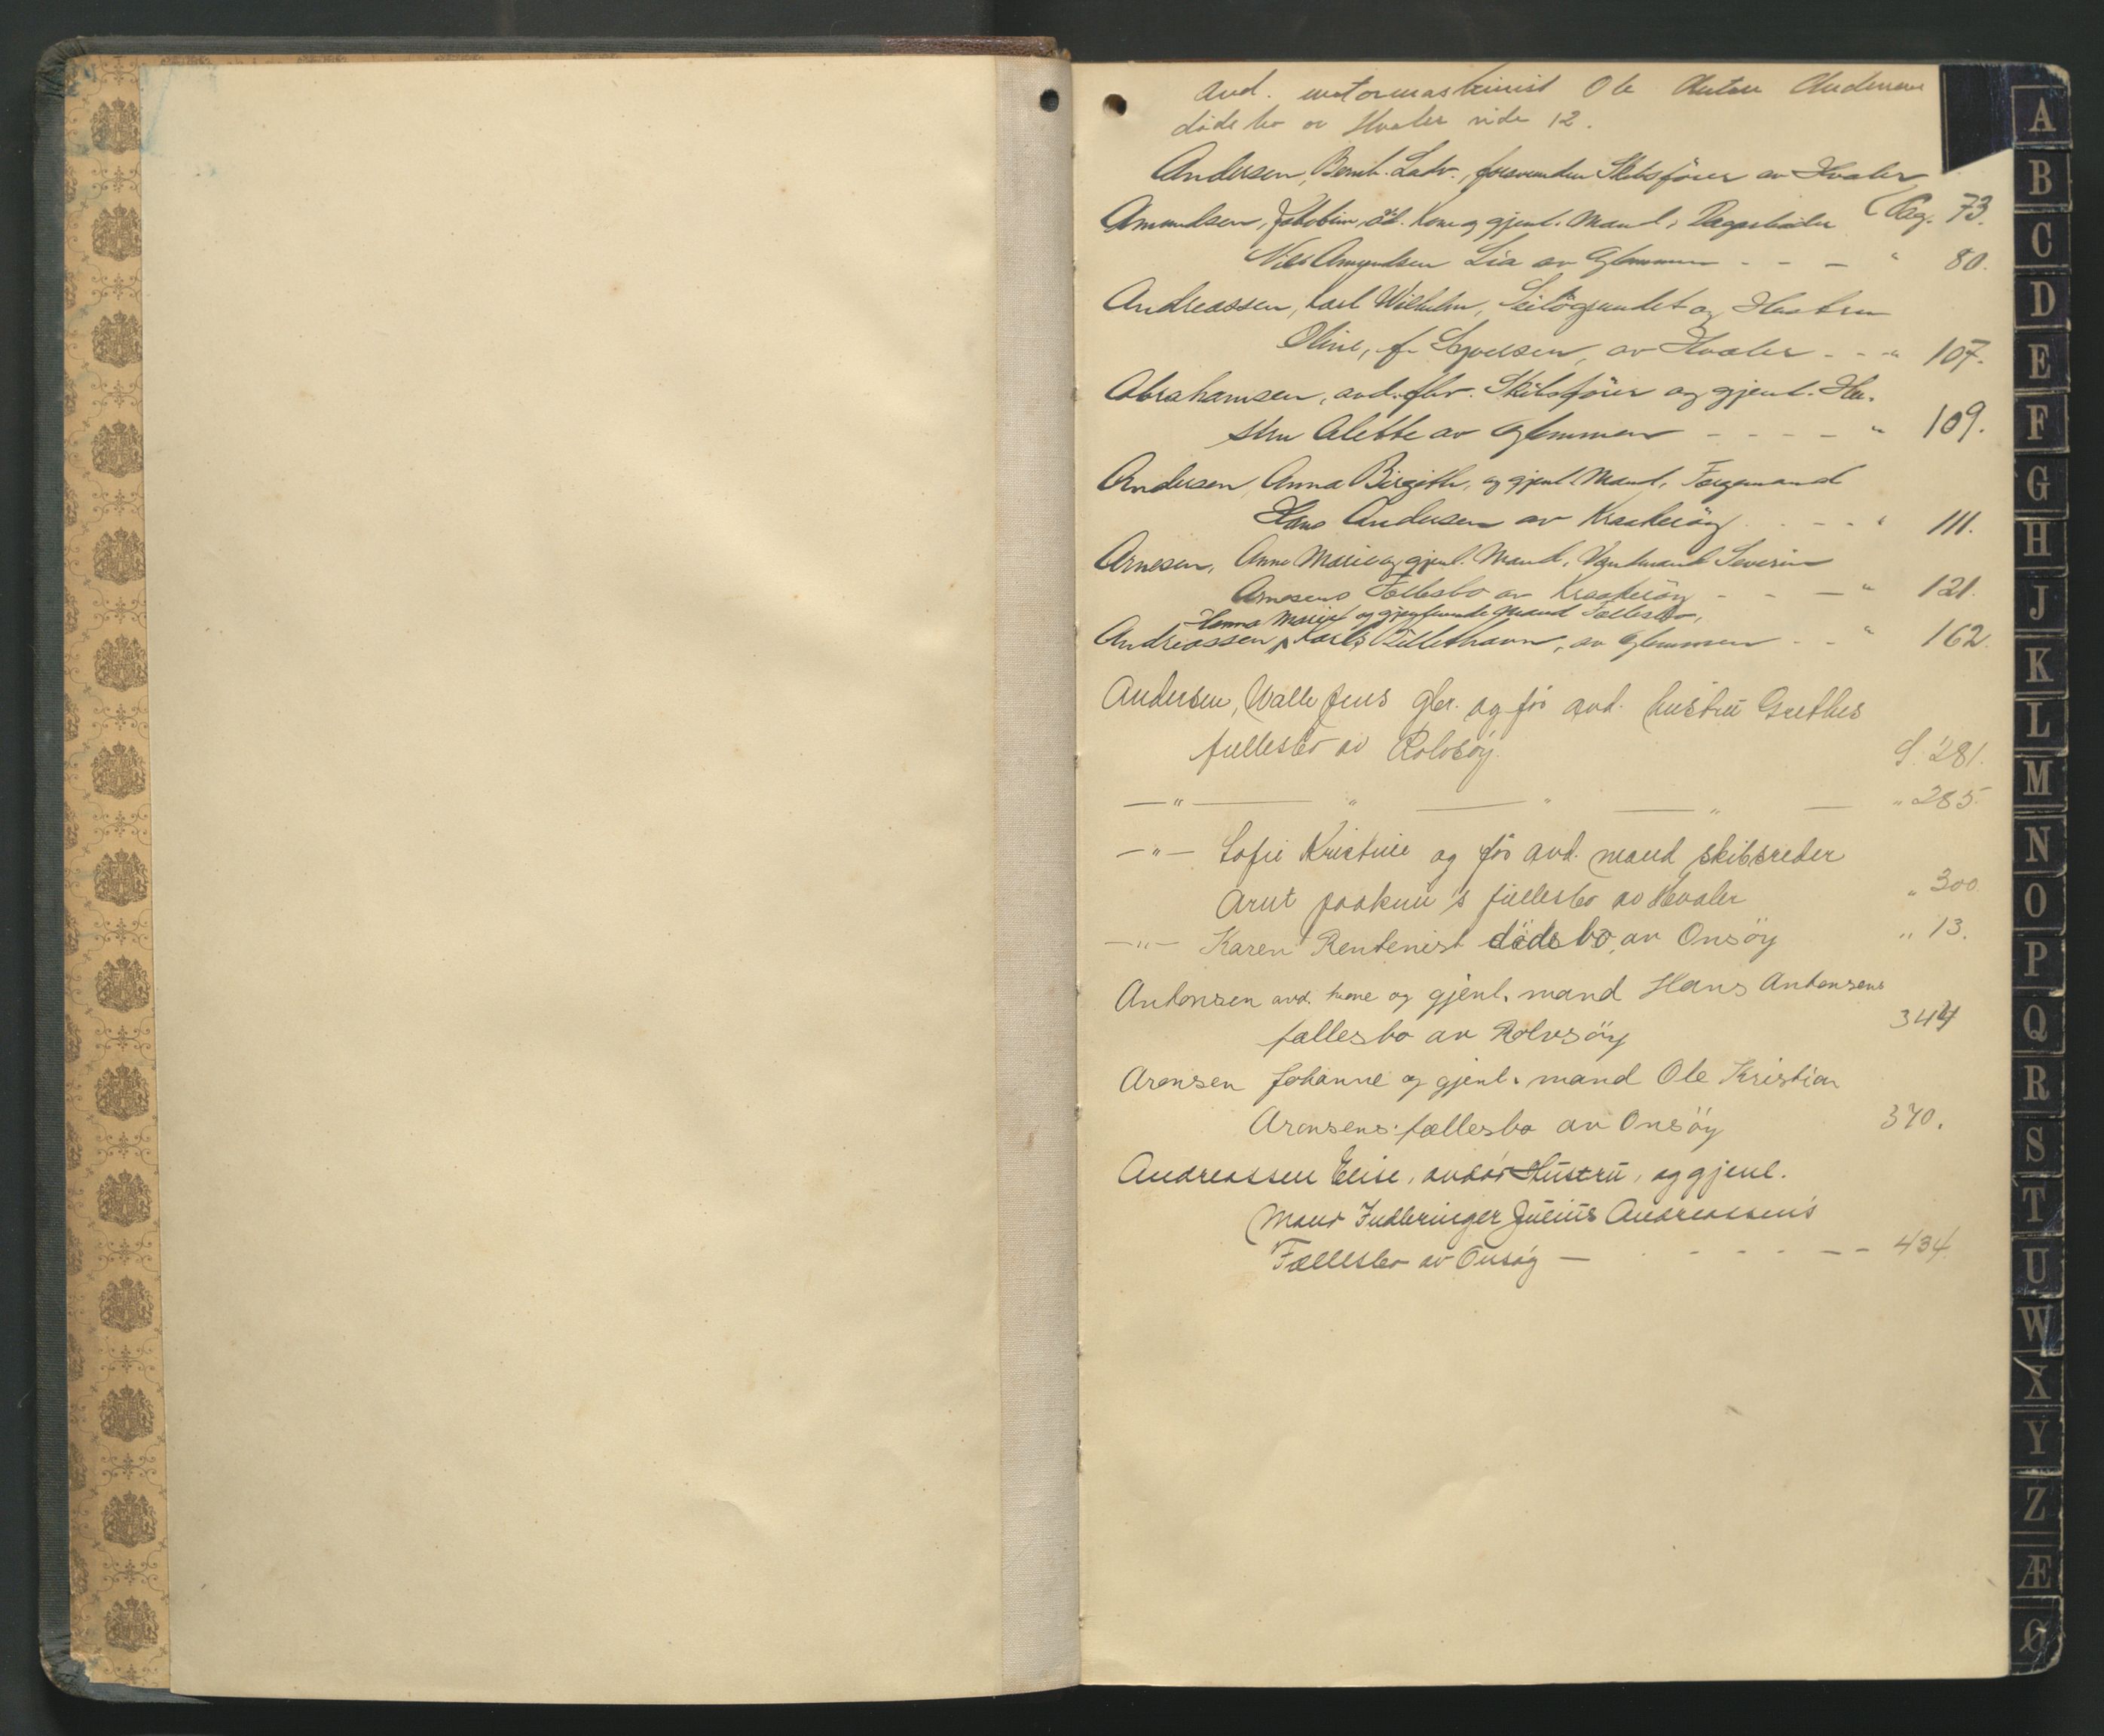 avd. motormaskinist Ole Anton Andersens
dødsbo av Hvaler side 12.
Andersen, Bernh. Ludv., forsvunden Skibsfører av Hvaler
Pag. 73.
Amundsen, Jakobine, død. Kone og gjenl. Mand, Dagarbeider
Nils Amundsen Lia av Glemmen - - - " 80.
Andreassen, Karl Wilhelm, og Hustru
Oline, f. Syversen, av Hvaler - - " 107.
Abrahamsen, avd. fhv. Skibsfører og gjenl. Hu-
stru Alette av Glemmen - - - - " 109.
Andersen, Anna Birgithe, og gjenl. Mand, Færgemand
Hans Andersen av Kraakerøy - - - " 111.
Arnesen, Anne Marie og gjenl. Mand, Severin
Arnesens Fællesbo av Kraakerøy - - - " 121.
Hanna Marie og gjenlevende Mand Fællesbo,
Andreassen, Karls, av Glemmen - - " 162.
Andersen, Walle Jens gbr. og før avd. hustru Grethes
fællesbo av Rolvsøy.
S. 281.
—"— " — " — " — " 285.
—"— Sofie Kristine og før avd. mand skibsreder
Arnt 's fællesbo av Hvaler
" 300.
—"— Karen Rentenist dødsbo, av Onsøy " 13.
Antonsen avd. kone og gjenl. mand Hans Antonsens
fællesbo av Rolvsøy
344
Aronsen Johanne og gjenl. mand Ole Kristian
Aronsens fællesbo av Onsøy 370.
Andreassen Elise, avdør Hustru, og gjenl.
Mand Indbringer Julius Andreassen's
Fællesbo av Onsøy — - - - - - - 434.
A
B
C
D
E
F
G
H
J
K
L
M
N
O
P
Q
R
S
T
U
W
X
Y
Z
Æ
Ø